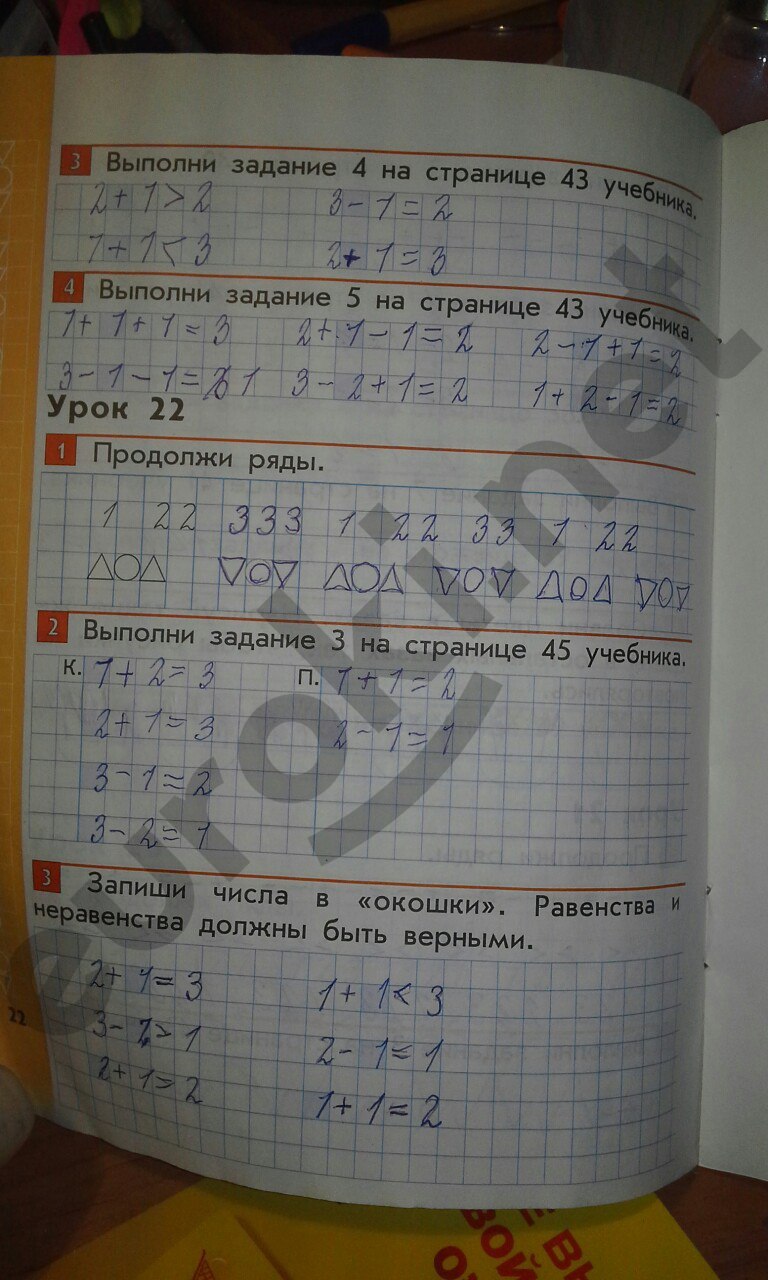 3 Выполни задание 4 на странице 43 учебника.
2+1>2 3-1=2
1+1<3 2+1=3
4 Выполни задание 5 на странице 43 учебника.
1+1+1=3 2+1-1=2 2-1+1=2
3-1-1=1 3-2+1=2 1+2-1=2
Урок 22
1 Продолжи ряды.
1 22 333 1 22 33 1 22
2 Выполни задание 3 на странице 45 учебника.
К. 1+2=3 П. 1+1=2
2+1=3 2-1=1
3-1=2
3-2=1
3 Запиши числа в «окошки». Равенства и
неравенства должны быть верными.
2+1=3 1+1<3
3- >1 2-1=1
2+1>2 1+1=2
22
eurokinet